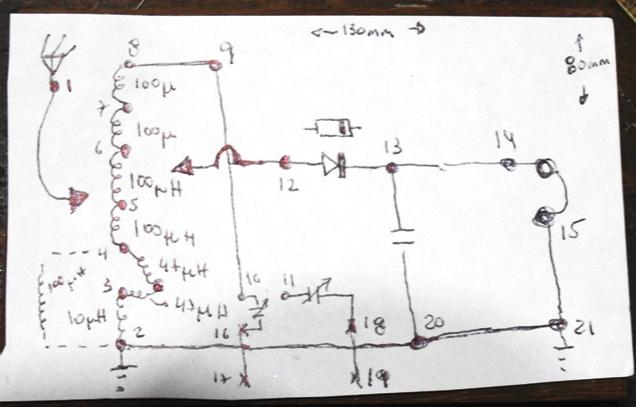 ← 130mm →
80mm
1
8
9
100μ
7
100μ
6
100μH
5
100μH
4
47μH
3
47μH
10μH
2
12
13
14
15
10
11
16
17
18
19
20
21